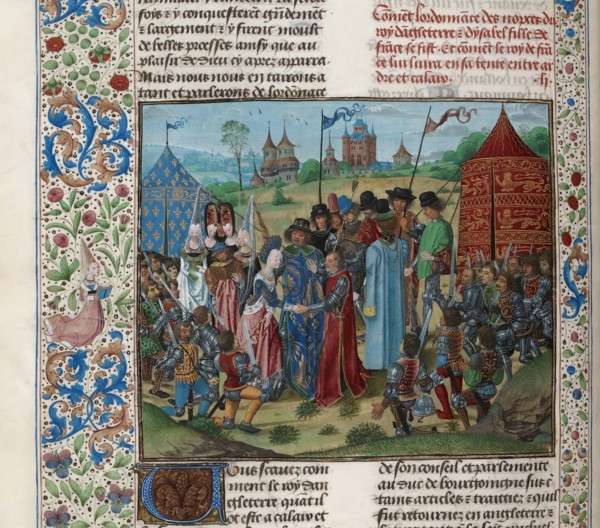 foys et y conquesterent grandement
et largement et y firent moult
de belles proesses ainsy que au
plaisir de dieu cy apres apparra
Mais nous nous en tairons a
tant et parlerons de lordonnance
Comment lordonnance des nopces du
roy dangleterre et dysabel fille de
france se fist. Et comment le roy de fran
ce luy livra en sa tente entre ar
dre et calaix.
Vous scavez com
ment le roy dan
gleterre quant il
ot este a calaix et
de son conseil et parlement
au duc de bourgoingne sur cer
tains articles et traittiez et quil
fut retournez en angleterre et